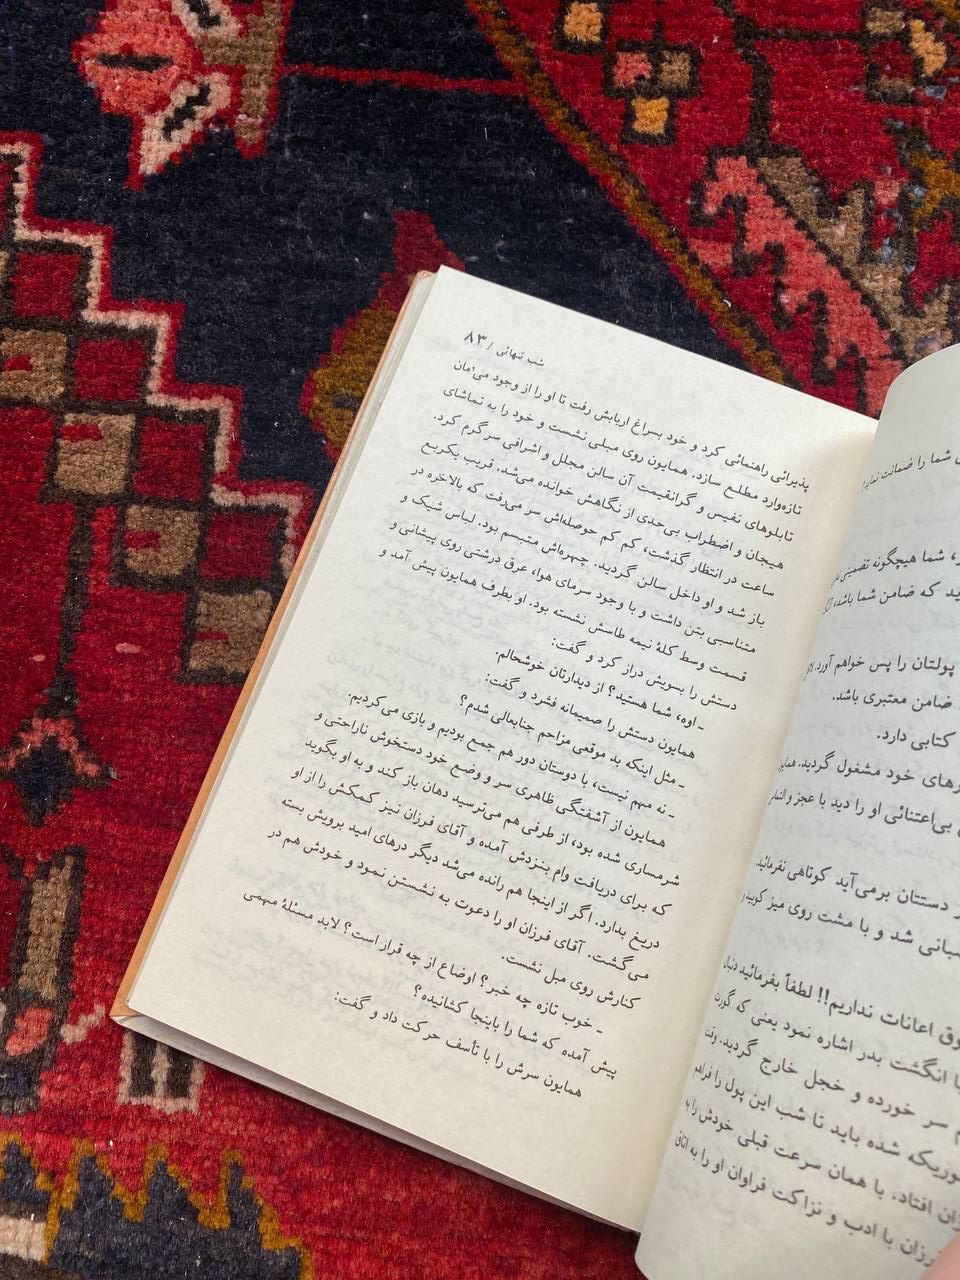 شب تنهائی / ۸۳
پذیرائی راهنمائی کرد و خود بسراغ اربابش رفت تا او را از وجود میهمان
تازه‌وارد مطلع سازد. همایون روی مبلی نشست و خود را به تماشای
تابلوهای نفیس و گرانقیمت آن سالن مجلل و اشرافی سرگرم کرد.
هیجان و اضطراب بی‌حدی از نگاهش خوانده می‌شد. قریب یکربع
ساعت در انتظار گذشت، کم کم حوصله‌اش سر می‌رفت که بالاخره در
باز شد و او داخل سالن گردید. چهره‌اش متبسم بود. لباس شیک و
متناسبی بتن داشت و با وجود سرمای هوا، عرق درشتی روی پیشانی و
قسمت وسط کلهٔ نیمه طاسش نشسته بود. او بطرف همایون پیش آمد و
دستش را بسویش دراز کرد و گفت:
ـ اوه، شما هستید؟ از دیدارتان خوشحالم.
همایون دستش را صمیمانه فشرد و گفت:
ـ مثل اینکه بد موقعی مزاحم جنابعالی شدم؟
ـ نه مهم نیست، با دوستان دور هم جمع بودیم و بازی می‌کردیم.
همایون از آشفتگی ظاهری سر و وضع خود دستخوش ناراحتی و
شرمساری شده بود، از طرفی هم می‌ترسید دهان باز کند و به او بگوید
که برای دریافت وام بنزدش آمده و آقای فرزان نیز کمکش را از او
دریغ بدارد. اگر از اینجا هم رانده می‌شد دیگر درهای امید برویش بسته
می‌گشت. آقای فرزان او را دعوت به نشستن نمود و خودش هم در
کنارش روی مبل نشست.
ـ خوب تازه چه خبر؟ اوضاع از چه قرار است؟ لابد مسئلهٔ مهمی
پیش آمده که شما را باینجا کشانیده؟
همایون سرش را با تأسف حرکت داد و گفت:
شما را ضمانت نماید
شما هیچگونه تضمینی
که ضامن شما باشد
پولتان را پس خواهم آورد.
ضامن معتبری باشد.
کتابی دارد.
های خود مشغول گردید.
بی‌اعتنائی او را دید با عجز و
دستتان برمی‌آید کوتاهی نفرمائید.
شد و با مشت روی میز کوبید و
اعانات نداریم!! لطفاً بفرمائید
انگشت بدر اشاره نمود یعنی که
سر خورده و خجل خارج گردید.
شده باید تا شب این پول را فراهم
افتاد. با همان سرعت قبلی خودش را به
با ادب و نزاکت فراوان او را به